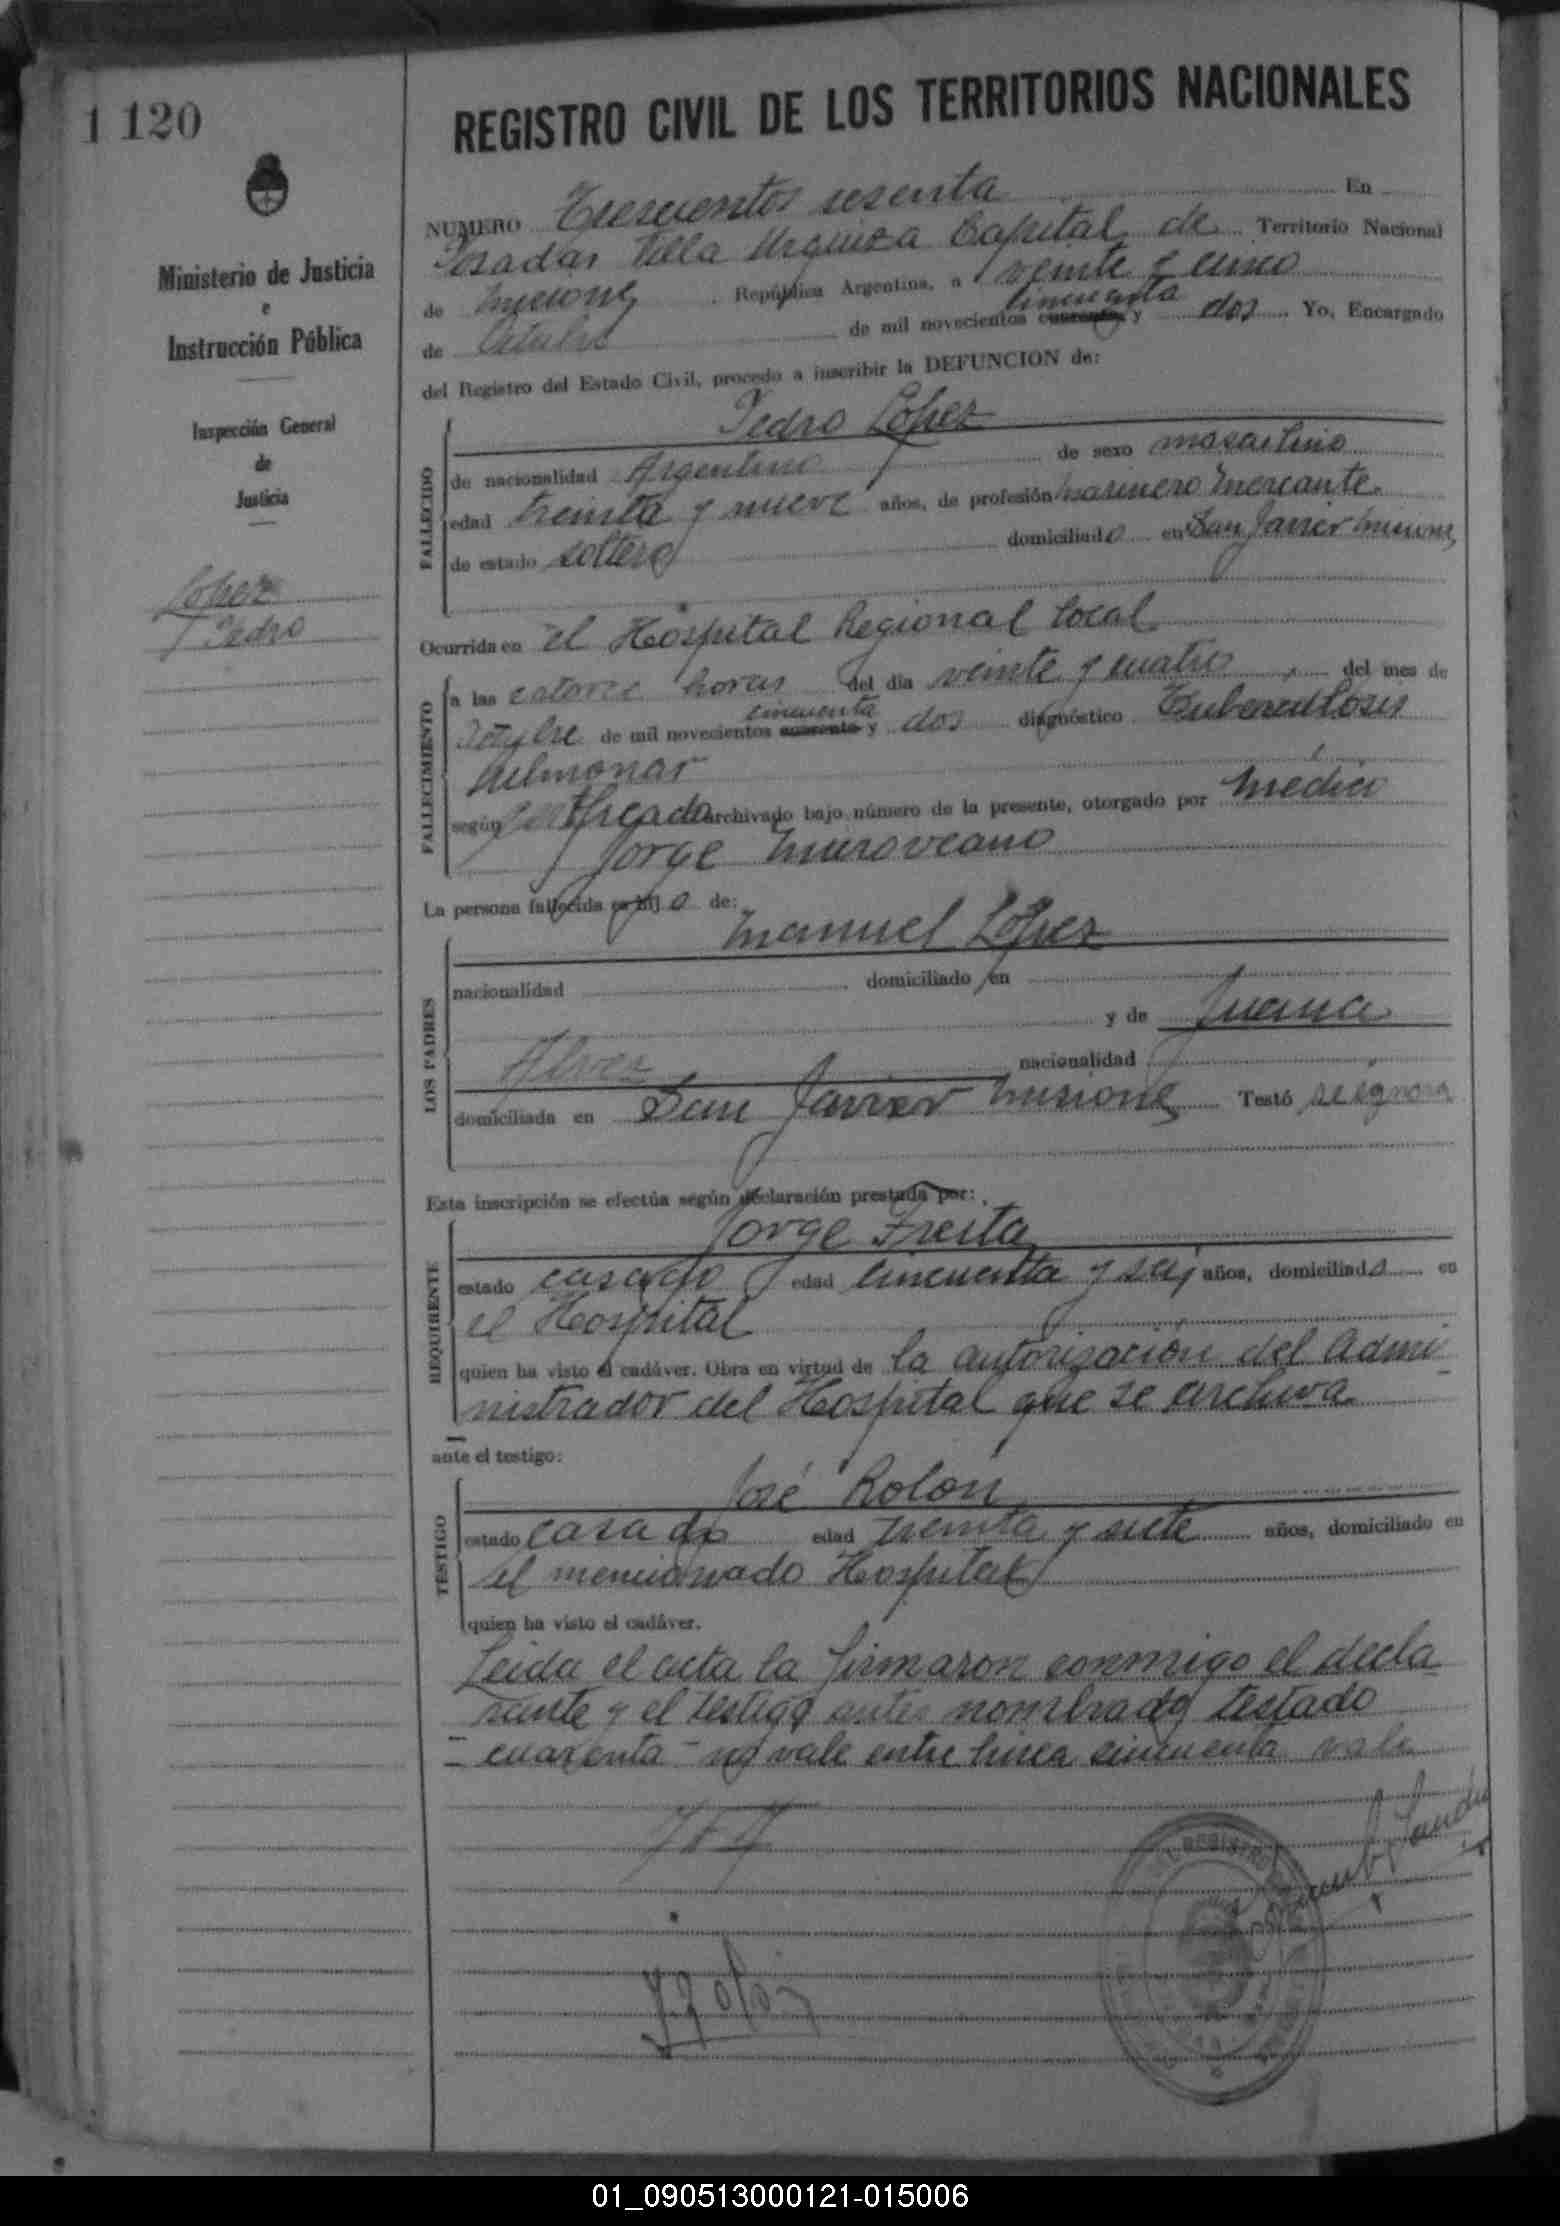 1 120
REGISTRO CIVIL DE LOS TERRITORIOS NACIONALES
Ministerio de Justicia
e
Instrucción Pública
Inspección General
de
Justicia
Lopez
Pedro
NUMERO Trescientos sesenta En
Posadas Villa Urquiza Capital de Territorio Nacional
de Misiones República Argentina, a veinte y cinco
cincuenta
de Octubre de mil novecientos cuarenta y dos Yo, Encargado
del Registro del Estado Civil, procedo a inscribir la DEFUNCION de:
FALLECIDO
Pedro López
de nacionalidad Argentino de sexo masculino
edad treinta y nueve años, de profesión marinero mercante.
de estado soltero domiciliado en San Javier Misiones
Ocurrida en el Hospital Regional local
FALLECIMIENTO
a las catorce horas del día veinte y cuatro del mes de
cincuenta
Octubre de mil novecientos cuarenta y dos diagnóstico Tuberculosis
pulmonar
según certificado archivado bajo número de la presente, otorgado por médico
Jorge
La persona fallecida es hijo de:
LOS PADRES
Manuel López
nacionalidad domiciliado en
y de Juana
Alvez nacionalidad
domiciliada en San Javier Misiones Testó se ignora
Esta inscripción se efectúa según declaración prestada por:
REQUIRENTE
Jorge
estado casado edad cincuenta y seis años, domiciliado en
el Hospital
quien ha visto el cadáver. Obra en virtud de la autorización del Admi
nistrador del Hospital que se archiva
ante el testigo:
TESTIGO
José Rolón
estado casado edad treinta y siete años, domiciliado en
el mencionado Hospital
quien ha visto el cadáver.
Leida el acta la firmaron conmigo el decla
rante y el testigo antes nombrado testado
- cuarenta - no vale entre linea cincuenta vale
REGISTRO
01_090513000121-015006